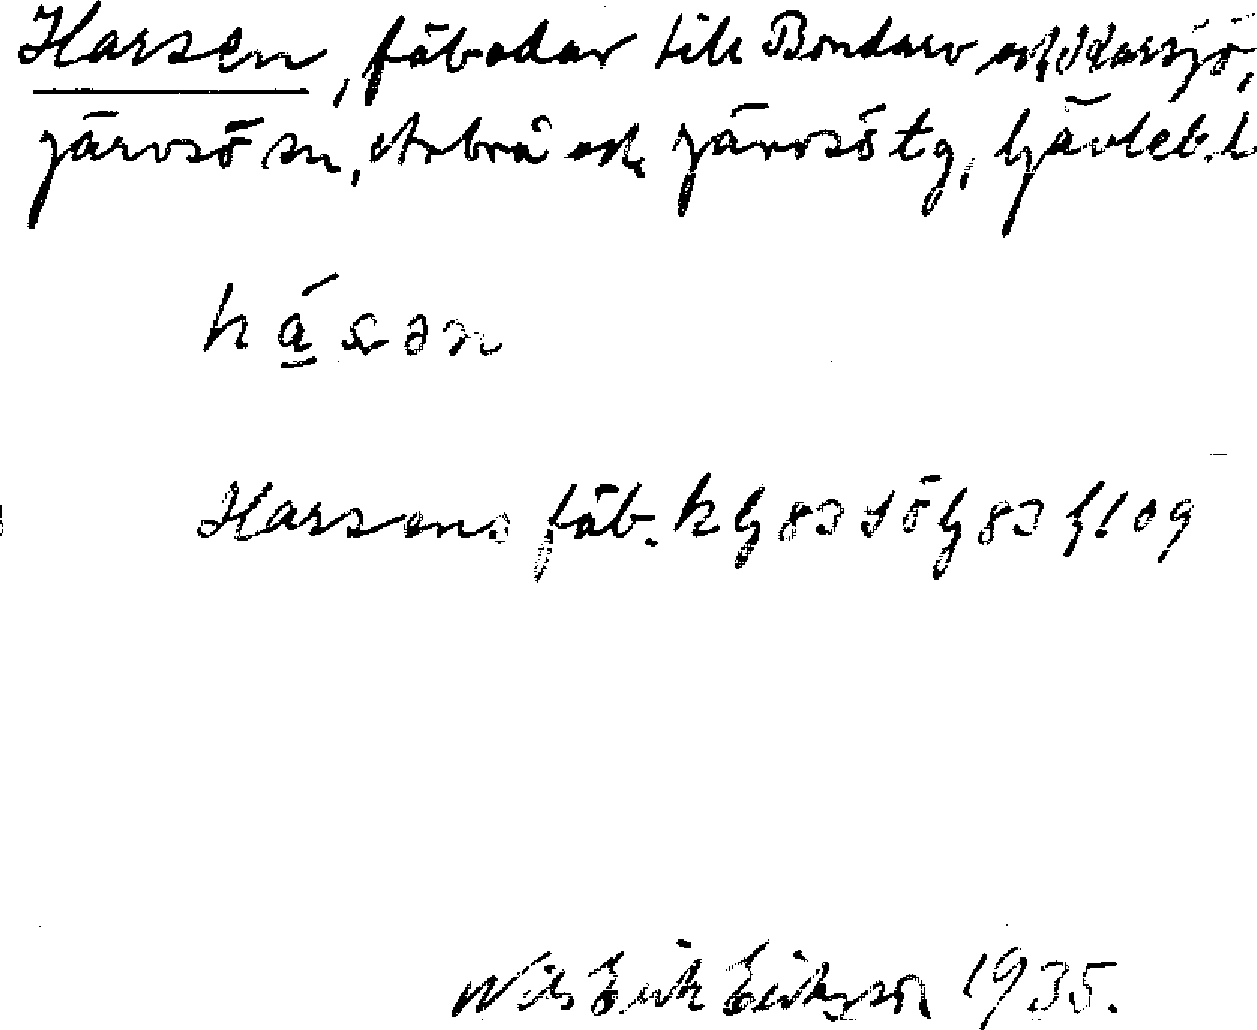 Harsen, fäbodar till Bondarv och Karsjö,
Järvsö sn, Arbrå och Järvsö tg, Gävleb. l
Harsens fäb. k G 83 Sö G 83 Gl 09
Nils Erik Eriksson 1935.